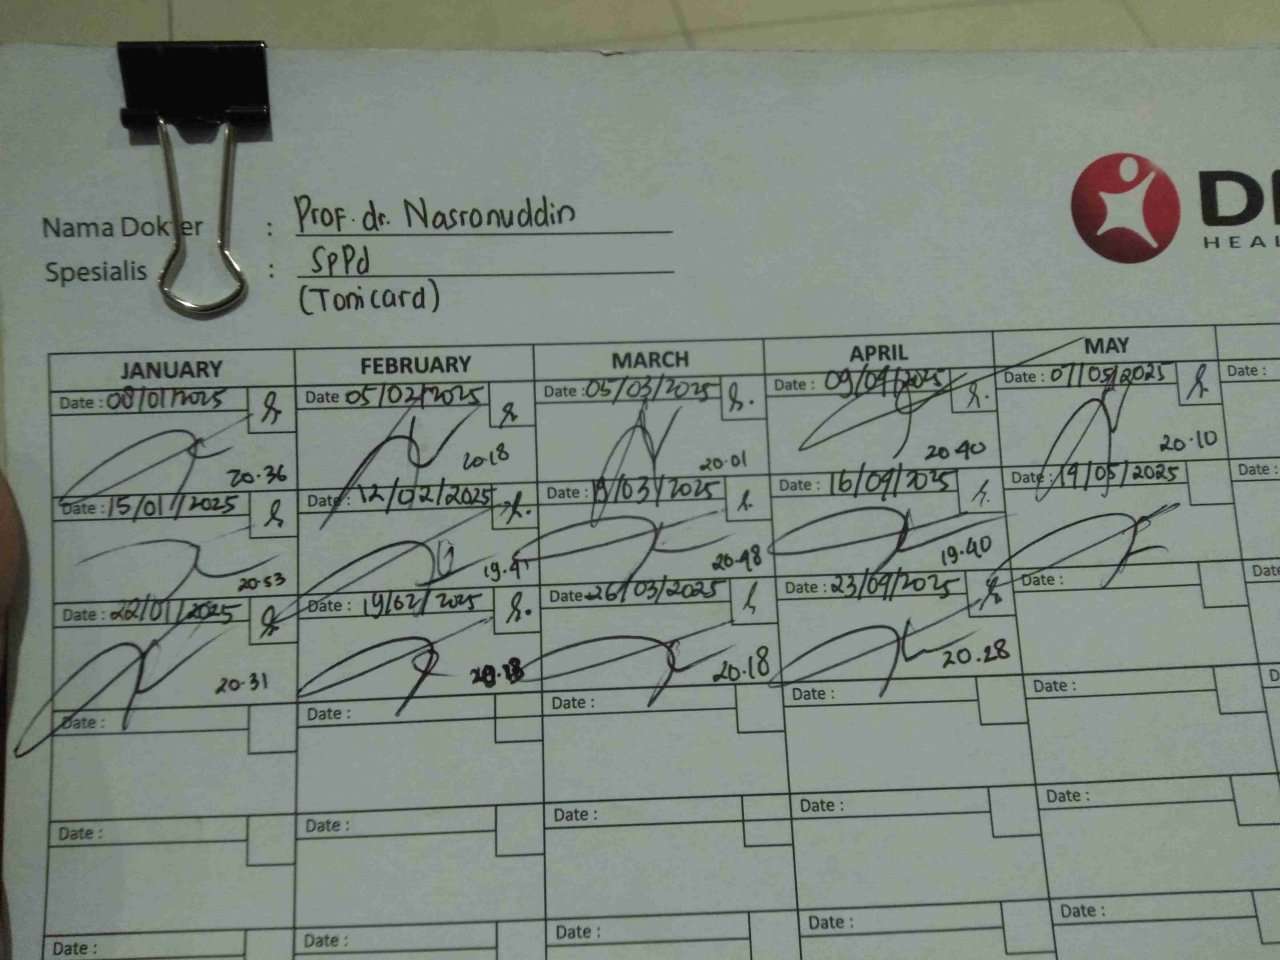 Nama Dokter : Prof. dr. Nasronuddin
Spesialis : SpPd
(Tonicard)
HEAL
JANUARY FEBRUARY MARCH APRIL MAY
Date : 08/01/2025 Date 05/02/2025 Date : 05/03/2025 Date : 09/04/2025 Date : 07/05/2025 Date :
20.36 20.18 20.01 20.40 20.10
Date : 15/01/2025 Date : 12/02/2025 Date : /03/2025 Date : 16/04/2025 Date : 14/05/2025 Date :
20.53 19.41 20.48 19.40
Date : 22/01/2025 Date : 19/02/2025 Date 26/03/2025 Date : 23/04/2025 Date : Date
20.31 20.18 20.18 20.28
Date : Date : Date : Date : Date :
Date : Date : Date : Date : Date :
Date : Date : Date : Date : Date :